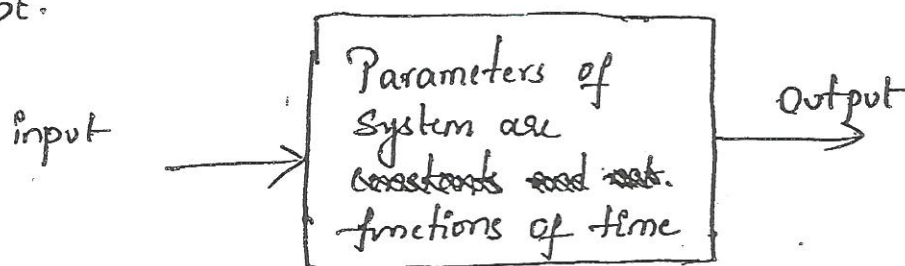 ot.
Parameters of
system are
constants and not.
functions of time
input
Output